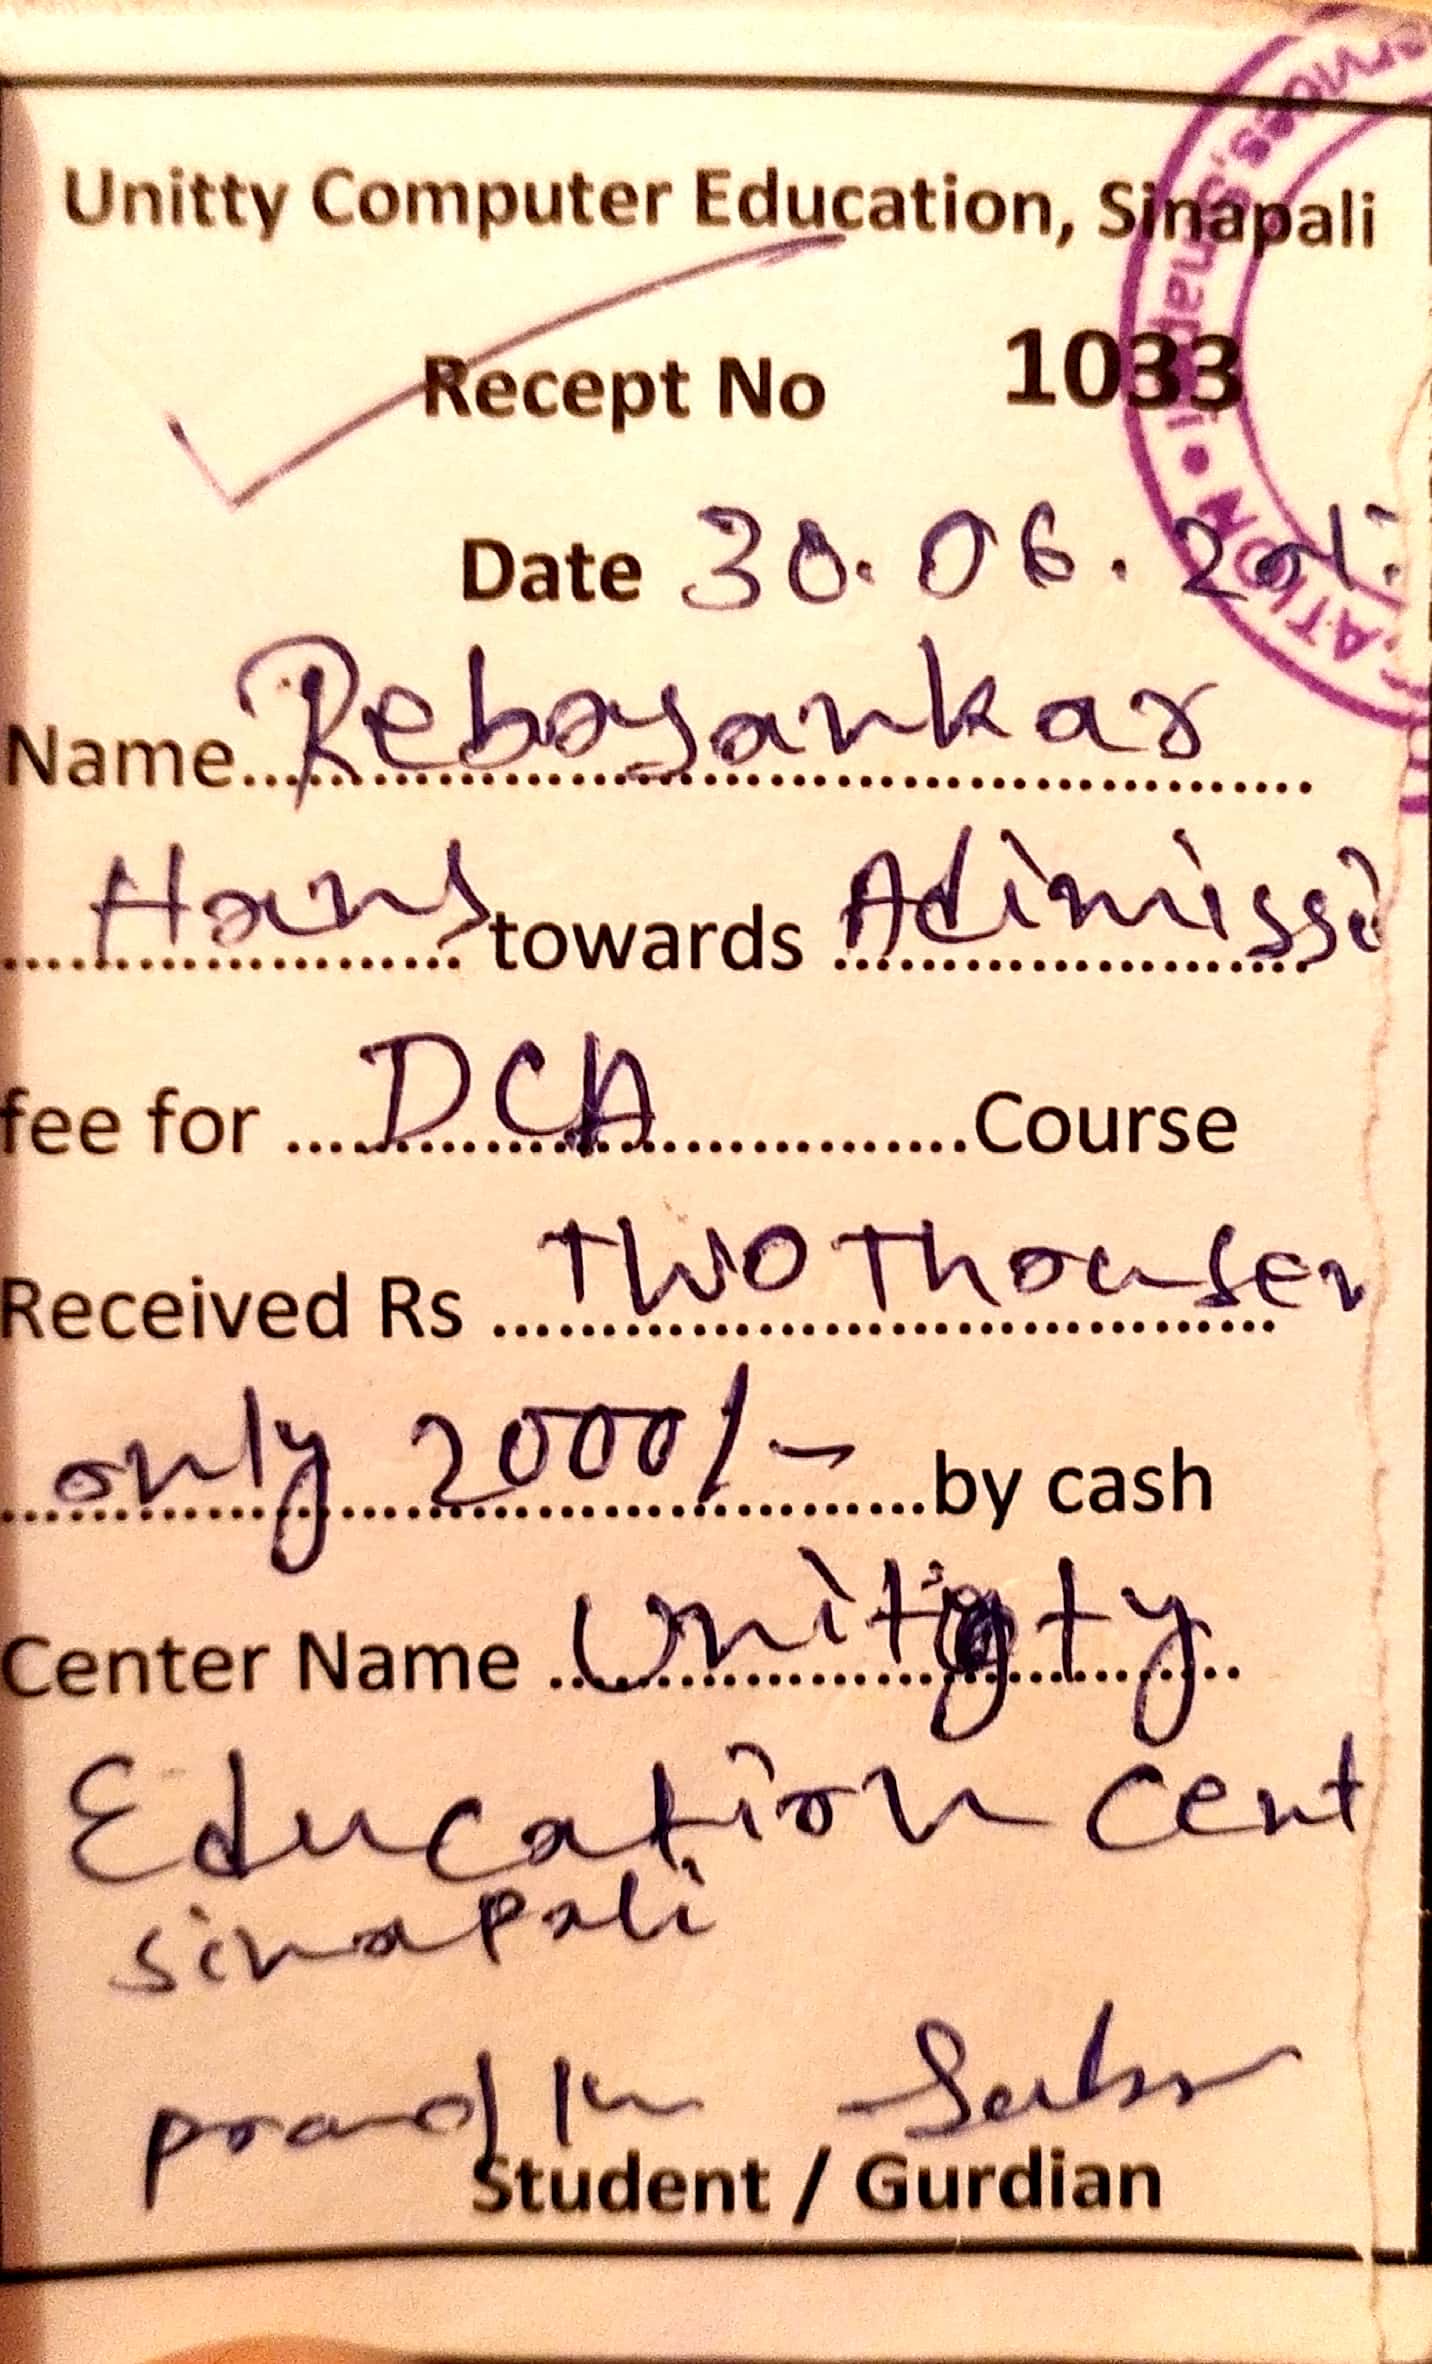 Unitty Computer Education, Sinapali
Recept No 1033
Date 30.06.
Name Rebasankar
Hans towards Adimissi
fee for DCA Course
Received Rs Two Thousen
only 2000/- by cash
Center Name
Education Cent
sinapali
Student / Gurdian